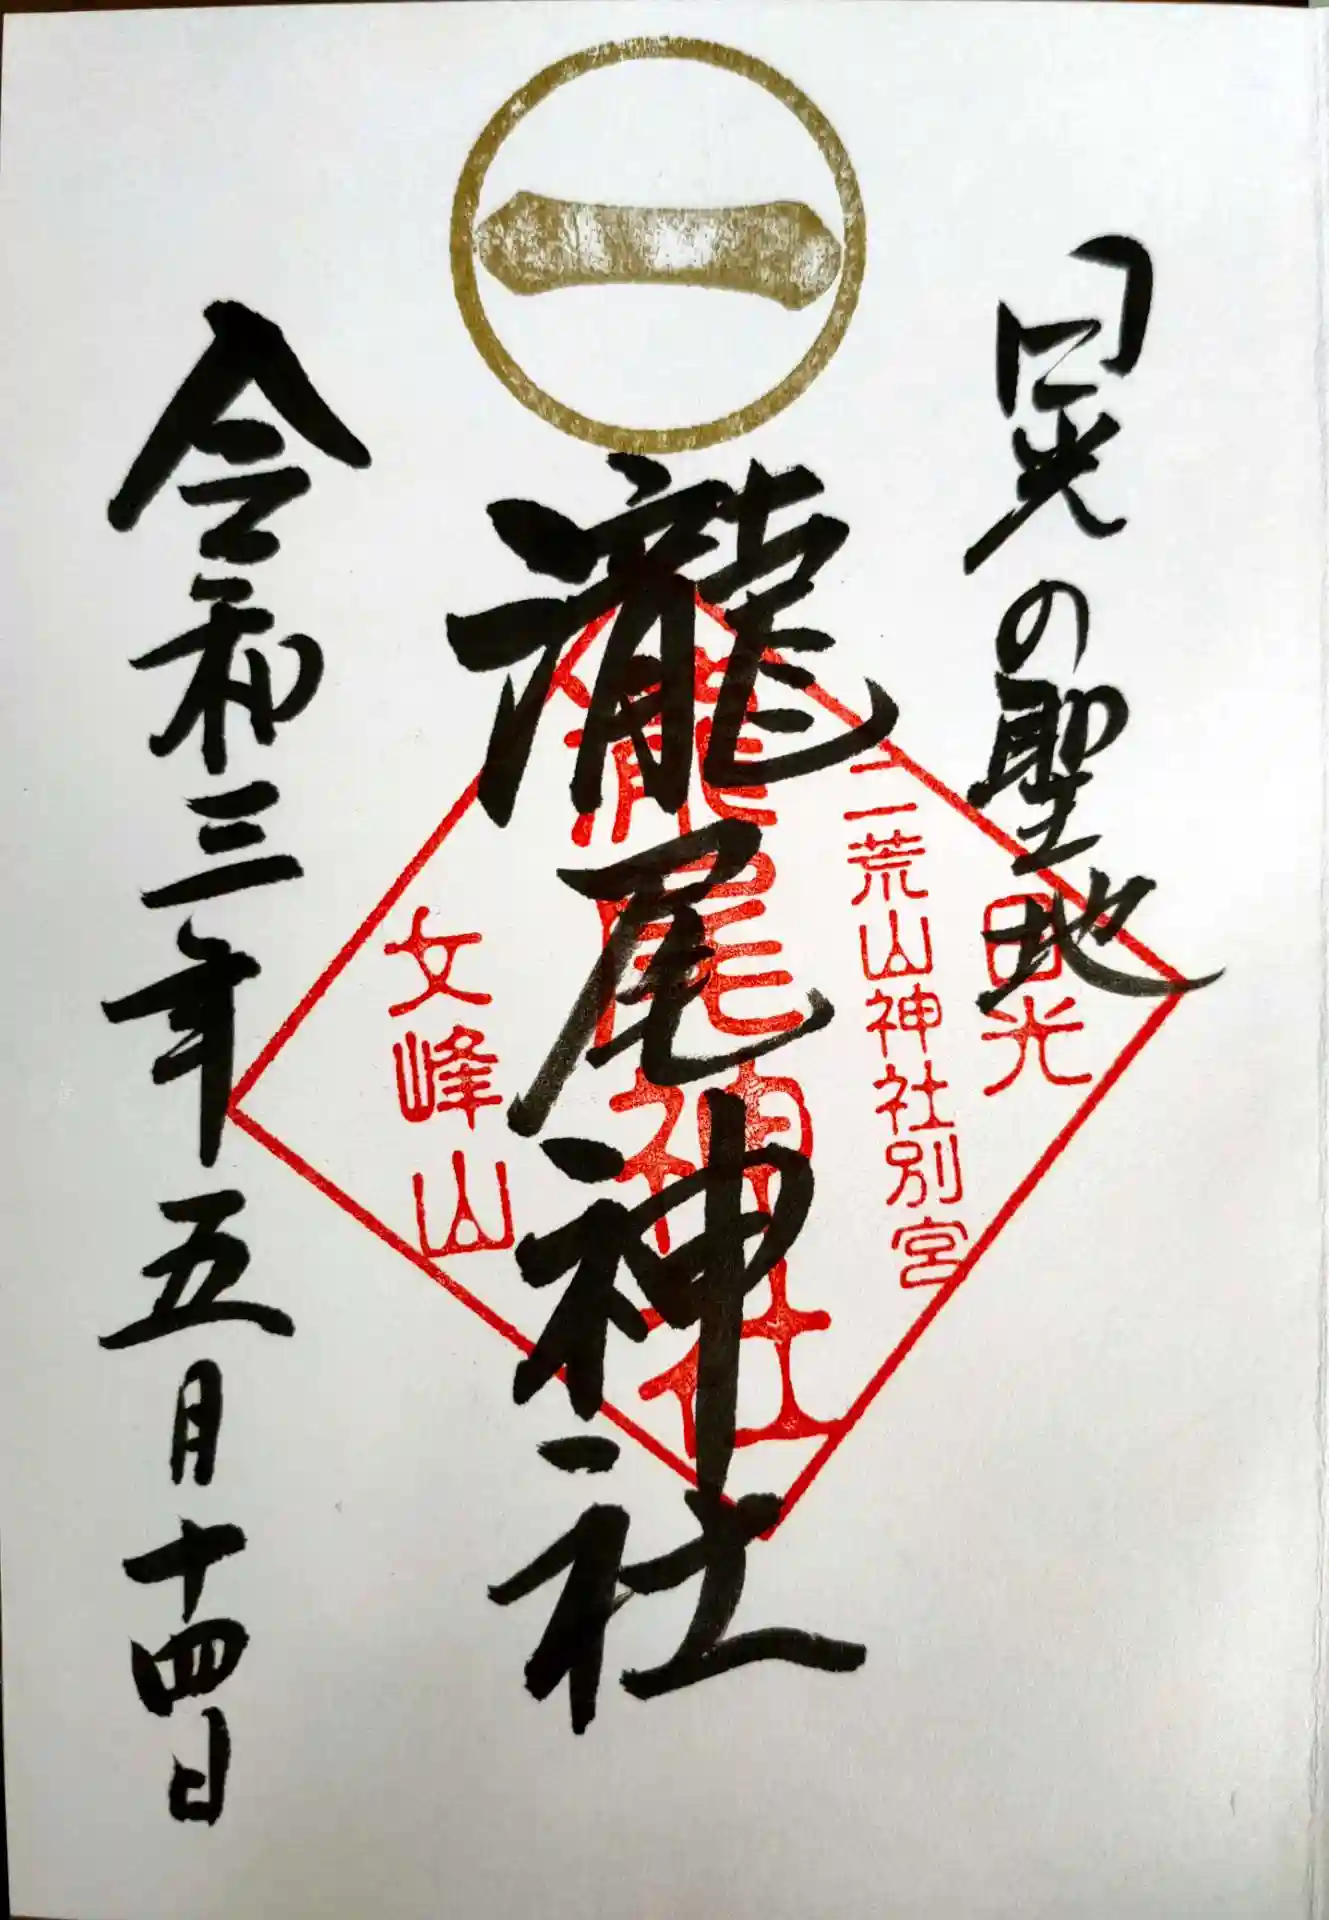 一
日光の聖地
瀧尾神社
令和三年五月十四日
日光
二荒山神社別宮
瀧尾神社
文峰山